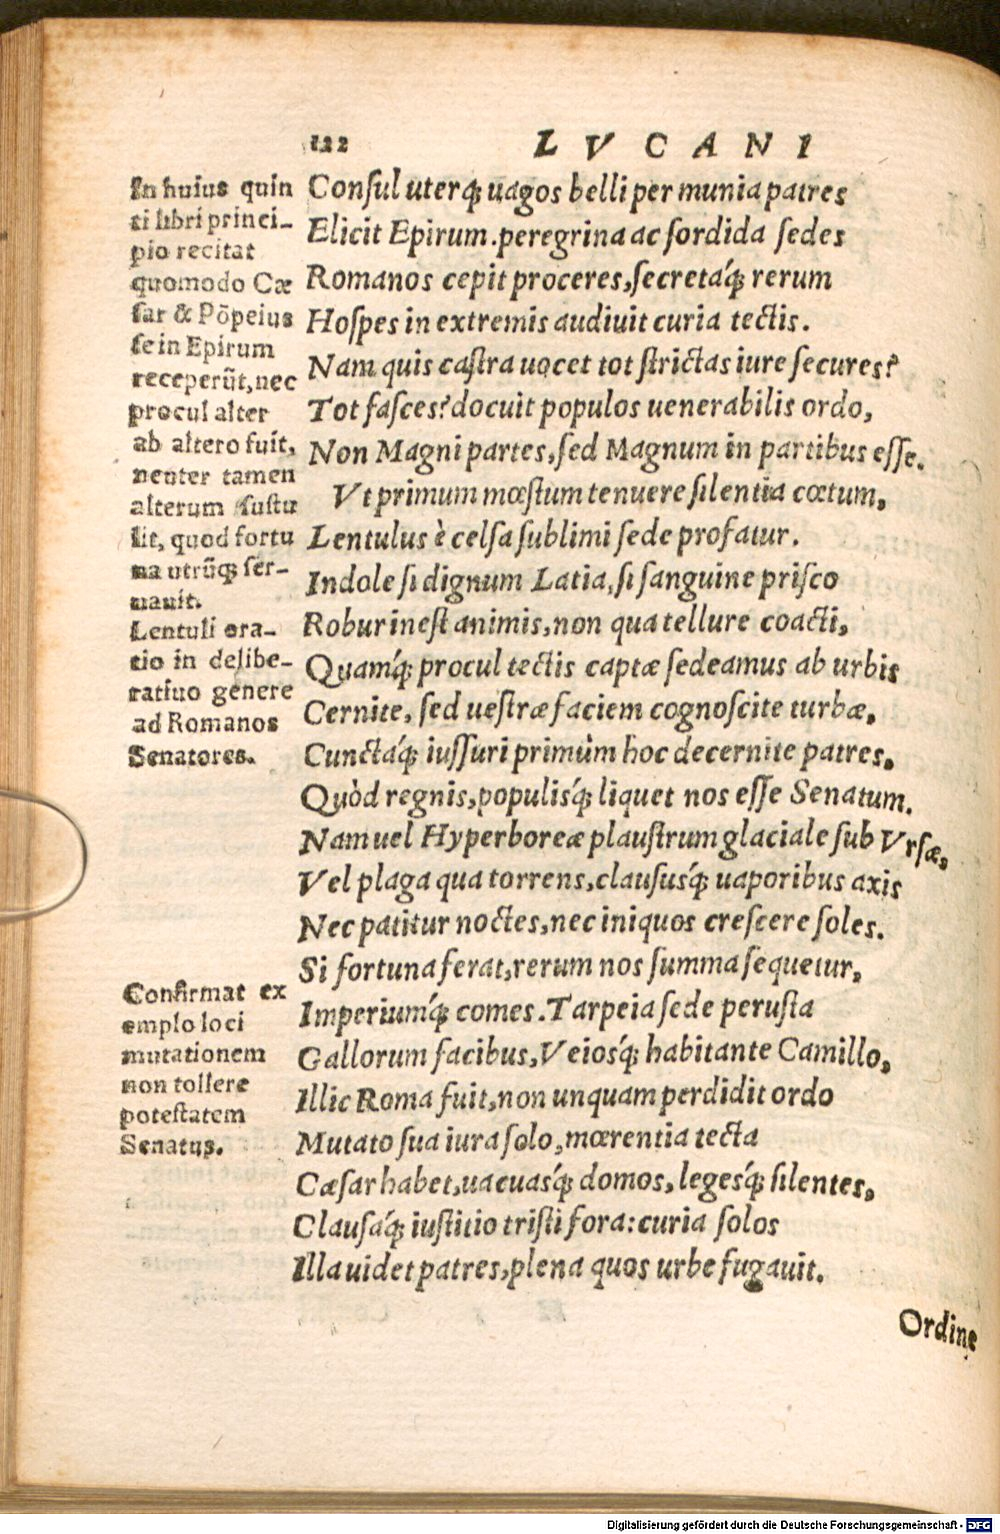 122 LVCANI
In huius quin
ti libri princi-
pio recitat
quomodo Cæ
sar & Põpeius
se in Epirum
receperũt, nec
procul alter
ab altero fuit,
neuter tamen
alterum sustu
lit, quod fortu
na utrũq; ser-
uauit.
Lentuli ora-
tio in delibe-
ratiuo genere
ad Romanos
Senatores.
Confirmat ex
emplo loci
mutationem
non tollere
potestatem
Senatus.
Consul uterq; uagos belli per munia patres
Elicit Epirum. peregrina ac sordida sedes
Romanos cepit proceres, secretáq; rerum
Hospes in extremis audiuit curia tectis.
Nam quis castra uocet tot strictas iure secures?
Tot fasces? docuit populos uenerabilis ordo,
Non Magni partes, sed Magnum in partibus esse.
Vt primum mœstum tenuere silentia cœtum,
Lentulus è celsa sublimi sede profatur.
Indole si dignum Latia, si sanguine prisco
Robur inest animis, non qua tellure coacti,
Quamq́; procul tectis captæ sedeamus ab urbis
Cernite, sed uestræ faciem cognoscite turbæ,
Cunctáq; iussuri primùm hoc decernite patres,
Quòd regnis, populisq́; liquet nos esse Senatum.
Nam uel Hyperboreæ plaustrum glaciale sub Vrsæ,
Vel plaga qua torrens, claususq́; uaporibus axis
Nec patitur noctes, nec iniquos crescere soles.
Si fortuna ferat, rerum nos summa sequetur,
Imperiumq́; comes. Tarpeia sede perusta
Gallorum facibus, Veiosq́; habitante Camillo,
Illic Roma fuit, non unquam perdidit ordo
Mutato sua iura solo, mœrentia tecta
Cæsar habet, uacuasq́; domos, legesq́; silentes,
Clausáq; iustitio tristi fora: curia solos
Illa uidet patres, plena quos urbe fugauit.
Ordine
Digitalisierung gefördert durch die Deutsche Forschungsgemeinschaft - DFG